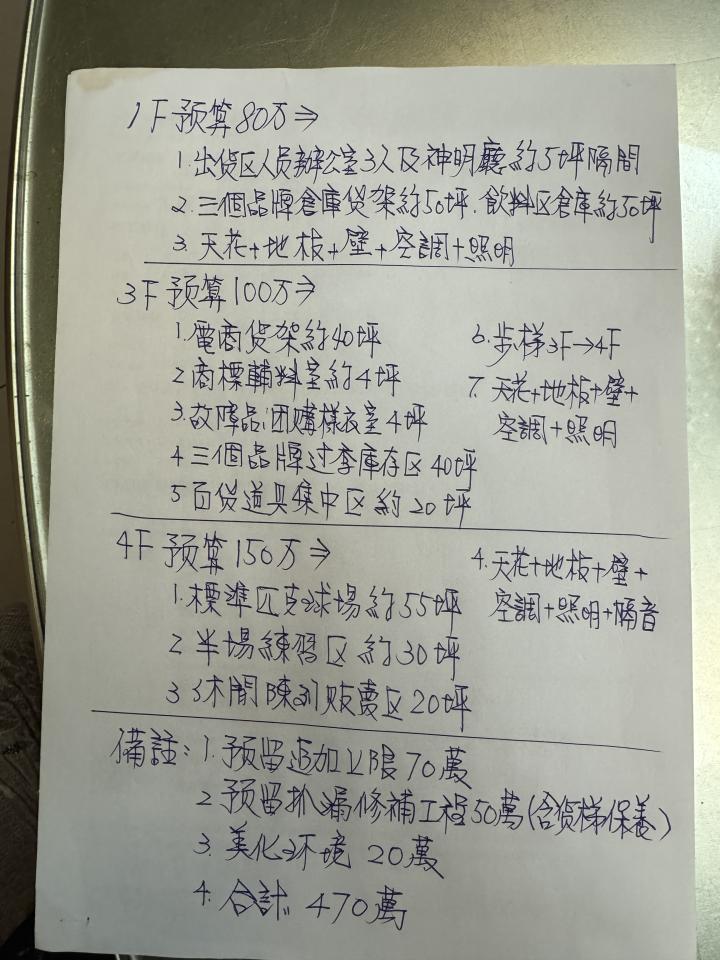 1F 预算80万⇒
1. 出貨区人员辦公室3人及神明廳約5坪隔間
2. 三個品牌倉庫貨架約50坪. 飲料区倉庫約50坪
3. 天花+地板+壁+空調+照明
3F 预算100万⇒
1. 電商貨架約40坪
2 商標輔料室約4坪
3. 故障品.团購樣衣室4坪
4 三個品牌过季庫存区40坪
5 百货道具集中区約20坪
6. 步梯3F→4F
7. 天花+地板+壁+
空調+照明
4F 预算150万⇒
1. 標準匹克球場約55坪
2 半場練習区約30坪
3 休閒陳列販賣区20坪
4. 天花+地板+壁+
空調+照明+隔音
備註: 1. 预留追加上限70萬
2 预留抓漏修補工程50萬(含货梯保養)
3. 美化环境 20萬
4. 合計 470萬